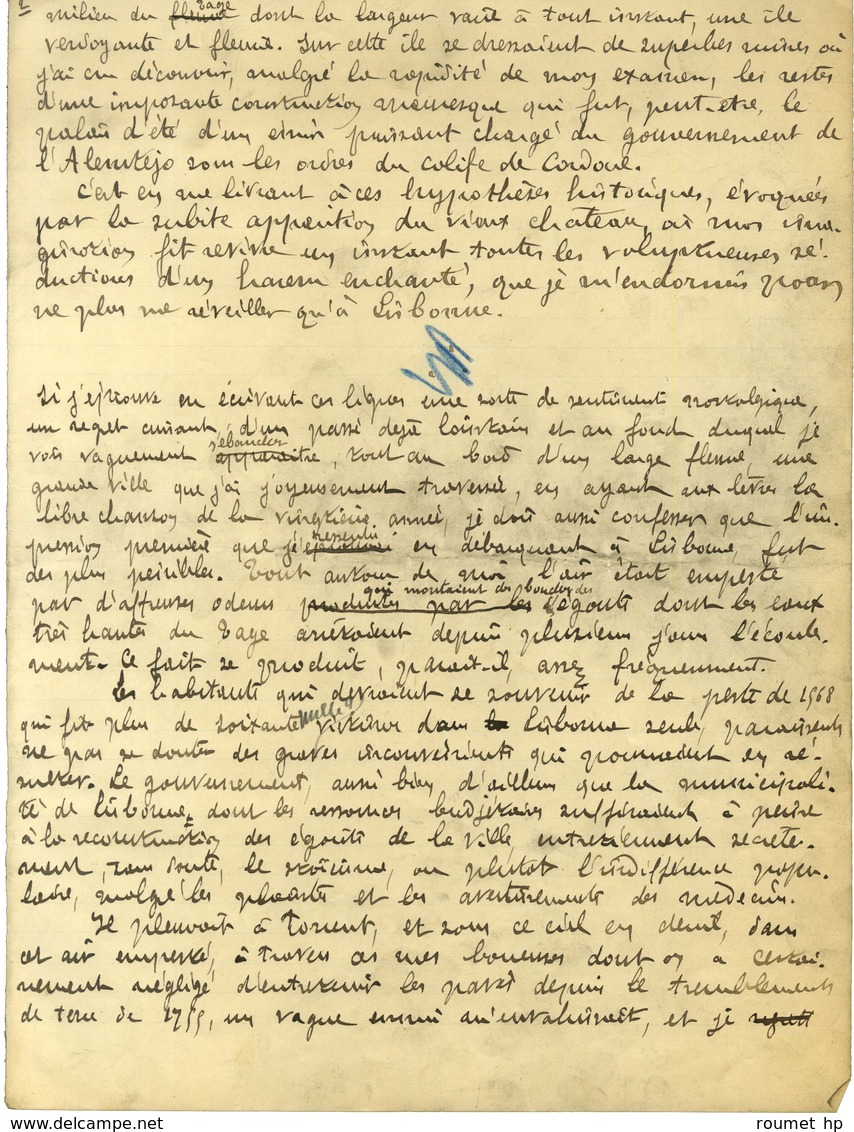 2
milieu du ~~fleuve~~ Tage dont la largeur varie à tout instant, une île
verdoyante et fleurie. Sur cette île se dressaient de superbes ruines où
j'ai cru découvrir, malgré la rapidité de mon examen, les restes
d'une imposante construction mauresque qui fut, peut-etre, le
palais d'été d'un émir puissant chargé du gouvernement de
l'Alemtéjo sous les ordres du calife de Cordoue.
C'est en me livrant à ces hypothèses historiques, évoquées
par la subite apparition du vieux chateau, où mon ima-
gination fit revivre un instant toutes les voluptueuses sé-
ductions d'un harem enchanté, que je m'endormis pour
ne plus me réveiller qu'à Lisbonne.
Si j'éprouve en écrivant ces lignes une sorte de sentiment nostalgique,
un regret cuisant, d'un passé dejà lointain et au fond duquel je
vois vaguement ~~apparaitre~~ s'ébaucher, tout au bord d'un large fleuve, une
grande ville que j'ai joyeusement traversée, en ayant aux lèvres la
libre chanson de la vingtième année, je dois aussi confesser que l'im-
pression première que j'~~éprouvai~~ ressentis en débarquant à Lisbonne, fut
des plus pénibles. Tout autour de moi l'air était empesté
par d'affreuses odeurs ~~produites par les~~ qui montaient des bouches des égouts dont les eaux
très hautes du Tage arrêtaient depuis plusieurs jours l'écoule-
ment. Ce fait se produit, parait-il, assez fréquemment.
Les habitants qui devraient se souvenir de la peste de 1568
qui fit plus de soixante mille victimes dans ~~la~~ Lisbonne seule, paraissent
ne pas se douter des graves inconvénients qui pourraient en ré-
sulter. Le gouvernement, aussi bien d'ailleurs que la municipali-
té de Lisbonne, dont les ressources budjétaires suffiraient à peine
à la reconstruction des égouts de la ville, entretiennent secrète-
ment, sans doute, le stoïcisme, ou plutot l'indifférence popu-
laire, malgré les plaintes et les avertissements des médecins.
Il pleuvait à torrent, et sous ce ciel en deuil, dans
cet air empesté, à travers ces rues boueuses dont on a certai-
nement négligé d'entretenir les pavés depuis le tremblements
de terre de 1755, un vague ennui m'envahissait, et je
roumet hp